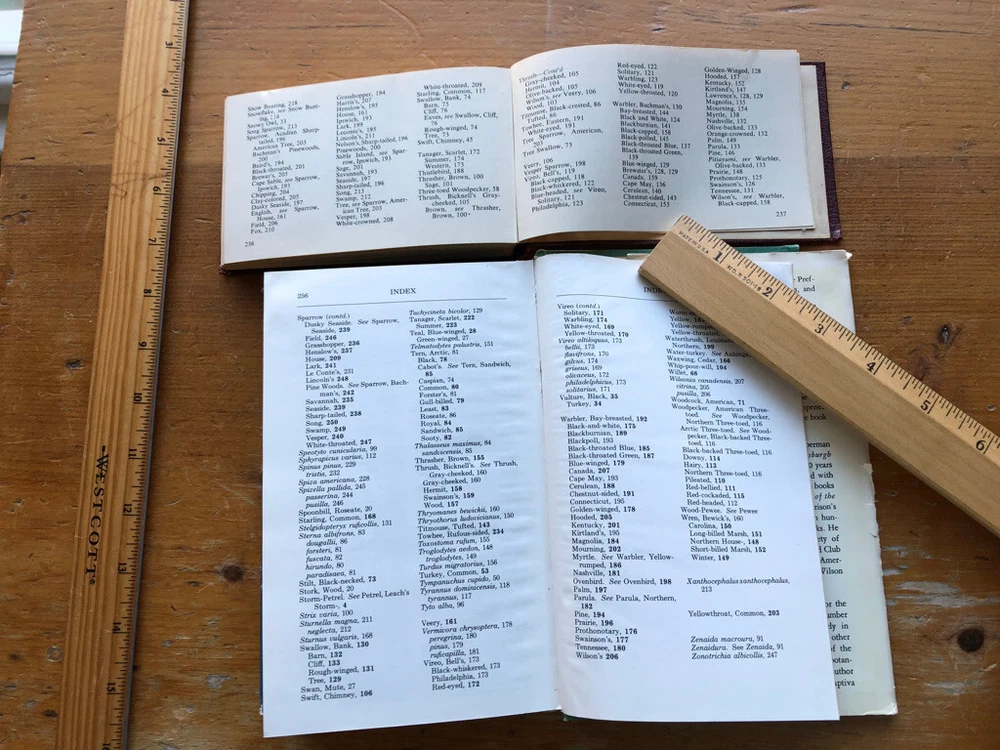 Snow Bunting, 218
Snowflake, see Snow Bunt-
ing, 218
Snowy Owl, 33
Song Sparrow, 213
Sparrow, Acadian Sharp-
tailed, 198
American Tree, 203
Bachman's Pinewoods,
200
Baird's, 194
Black-throated, 201
Brewer's, 205
Cape Sable, see Sparrow,
Ipswich, 193
Chipping, 204
Clay-colored, 205
Dusky Seaside, 197
English, see Sparrow,
House, 161
Field, 206
Fox, 210
236
Grasshopper, 194
Harris's, 207
Henslow's, 193
House, 161
Ipswich, 193
Lark, 199
Leconte's, 195
Lincoln's, 211
Nelson's Sharp-tailed, 196
Pinewoods, 200
Sable Island, see Spar-
row, Ipswich, 193
Sage, 201
Savannah, 193
Seaside, 197
Sharp-tailed, 196
Song, 213
Swamp, 212
Tree, see Sparrow, Amer-
ican Tree, 203
Vesper, 198
White-crowned, 208
White-throated, 209
Starling, Common, 117
Swallow, Bank, 74
Barn, 75
Cliff, 76
Eaves, see Swallow, Cliff,
76
Rough-winged, 74
Tree, 73
Swift, Chimney, 45
Tanager, Scarlet, 172
Summer, 174
Western, 173
Thistlebird, 188
Thrasher, Brown, 100
Sage, 101
Three-toed Woodpecker, 58
Thrush, Bicknell's Gray-
cheeked, 105
Brown, see Thrasher,
Brown, 100
Thrush—Cont'd
Gray-cheeked, 105
Hermit, 104
Olive-backed, 105
Wilson's, see Veery, 106
Wood, 103
Titmouse, Black-crested, 86
Tufted, 86
Towhee, Eastern, 191
White-eyed, 191
Tree Sparrow, American,
203
Tree Swallow, 73
Veery, 106
Vesper Sparrow, 198
Vireo, Bell's, 119
Black-capped, 118
Black-whiskered, 122
Blue-headed, see Vireo,
Solitary, 121
Philadelphia, 123
Red-eyed, 122
Solitary, 121
Warbling, 123
White-eyed, 119
Yellow-throated, 120
Warbler, Bachman's, 130
Bay-breasted, 144
Black and White, 124
Blackburnian, 141
Black-capped, 158
Black-polled, 145
Black-throated Blue, 137
Black-throated Green,
139
Blue-winged, 129
Brewster's, 128, 129
Canada, 159
Cape May, 136
Cerulean, 140
Chestnut-sided, 143
Connecticut, 153
Golden-Winged, 128
Hooded, 157
Kentucky, 152
Kirtland's, 147
Lawrence's, 128, 129
Magnolia, 135
Mourning, 154
Myrtle, 138
Nashville, 132
Olive-backed, 133
Orange-crowned, 132
Palm, 149
Parula, 133
Pine, 146
Pitiayumi, see Warbler,
Olive-backed, 133
Prairie, 148
Prothonotary, 125
Swainson's, 126
Tennessee, 131
Wilson's, see Warbler,
Black-capped, 158
237
256
INDEX
Sparrow (contd.)
Dusky Seaside. See Sparrow,
Seaside, 239
Field, 246
Grasshopper, 236
Henslow's, 237
House, 209
Lark, 241
Le Conte's, 231
Lincoln's 248
Pine Woods. See Sparrow, Bach-
man's, 242
Savannah, 235
Seaside, 239
Sharp-tailed, 238
Song, 250
Swamp, 249
Vesper, 240
White-throated, 247
Speotyto cunicularia, 99
Sphyrapicus varius, 112
Spinus pinus, 229
tristis, 232
Spiza americana, 228
Spizella pallida, 245
passerina, 244
pusilla, 246
Spoonbill, Roseate, 20
Starling, Common, 168
Stelgidopteryx ruficollis, 131
Sterna albifrons, 83
dougallii, 86
forsteri, 81
fuscata, 82
hirundo, 80
paradisaea, 81
Stilt, Black-necked, 73
Stork, Wood, 20
Storm-Petrel. See Petrel, Leach's
Storm-, 4
Strix varia, 100
Sturnella magna, 211
neglecta, 212
Sturnus vulgaris, 168
Swallow, Bank, 130
Barn, 132
Cliff, 133
Rough-winged, 131
Tree, 129
Swan, Mute, 27
Swift, Chimney, 106
Tachycineta bicolor, 129
Tanager, Scarlet, 222
Summer, 223
Teal, Blue-winged, 28
Green-winged, 27
Telmatodytes palustris, 151
Tern, Arctic, 81
Black, 78
Cabot's. See Tern, Sandwich,
85
Caspian, 74
Common, 80
Forster's, 81
Gull-billed, 79
Least, 83
Roseate, 86
Royal, 84
Sandwich, 85
Sooty, 82
Thalasseus maximus, 84
sandvicensis, 85
Thrasher, Brown, 155
Thrush, Bicknell's. See Thrush,
Gray-cheeked, 160
Gray-cheeked, 160
Hermit, 158
Swainson's, 159
Wood, 157
Thryomanes bewickii, 160
Thryothorus ludovicianus, 150
Titmouse, Tufted, 143
Towhee, Rufous-sided, 234
Toxostoma rufum, 155
Troglodytes aedon, 148
troglodytes, 149
Turdus migratorius, 156
Turkey, Common, 53
Tympanuchus cupido, 50
Tyrannus dominicensis, 118
tyrannus, 117
Tyto alba, 96
Veery, 161
Vermivora chrysoptera, 178
peregrina, 180
pinus, 179
ruficapilla, 181
Vireo, Bell's, 173
Black-whiskered, 173
Philadelphia, 173
Red-eyed, 172
Vireo (contd.)
Solitary, 171
Warbling, 174
White-eyed, 169
Yellow-throated, 170
Vireo altiloquus, 173
bellii, 173
flavifrons, 170
gilvus, 174
griseus, 169
olivaceus, 172
philadelphicus, 173
solitarius, 171
Vulture, Black, 35
Turkey, 34
Warbler, Bay-breasted, 192
Black-and-white, 175
Blackburnian, 189
Blackpoll, 193
Black-throated Blue, 185
Black-throated Green, 187
Blue-winged, 179
Canada, 207
Cape May, 193
Cerulean, 188
Chestnut-sided, 191
Connecticut, 195
Golden-winged, 178
Hooded, 205
Kentucky, 201
Kirtland's, 195
Magnolia, 184
Mourning, 202
Myrtle. See Warbler, Yellow-
rumped, 186
Nashville, 181
Ovenbird. See Ovenbird, 198
Palm, 197
Parula. See Parula, Northern,
182
Pine, 194
Prairie, 196
Prothonotary, 176
Swainson's, 177
Tennessee, 180
Wilson's 206
Yellow,
Yellow-rumped
Yellow-throated
Waterthrush, Louisiana
Northern, 199
Water-turkey. See Anhinga
Waxwing, Cedar, 166
Whip-poor-will, 104
Willet, 68
Wilsonia canadensis, 207
citrina, 205
pusilla, 206
Woodcock, American, 71
Woodpecker, American Three-
toed. See Woodpecker,
Northern Three-toed, 116
Arctic Three-toed. See Wood-
pecker, Black-backed Three-
toed, 116
Black-backed Three-toed, 116
Downy, 114
Hairy, 113
Northern Three-toed, 116
Pileated, 110
Red-bellied, 111
Red-cockaded, 115
Red-headed, 112
Wood-Pewee. See Pewee
Wren, Bewick's, 160
Carolina, 150
Long-billed Marsh, 151
Northern House-, 148
Short-billed Marsh, 152
Winter, 149
Xanthocephalus xanthocephalus,
213
Yellowthroat, Common, 203
Zenaida macroura, 91
Zenaidura. See Zenaida, 91
Zonotrichia albicollis, 247
MADE IN U.S.A.
1
2
3
4
5
6
WESTCOTT